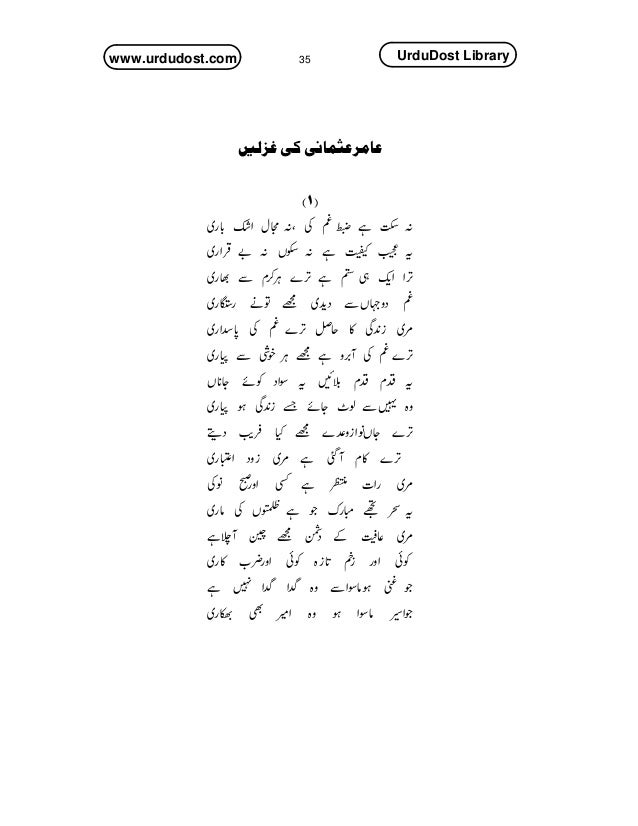 www.urdudost.com
35
UrduDost Library
عامر عثمانی کی غزلیں
(۱)
نہ سکت ہے ضبط غم کی ،نہ مجال اشک باری
یہ عجیب کیفیت ہے نہ سکوں نہ بے قراری
ترا ایک ہی ستم ہے ترے ہرکرم سے بھاری
غم دوجہاں سے دیدی مجھے تونے رستگاری
مری زندگی کا حاصل ترے غم کی پاسداری
ترے غم کی آبرو ہے مجھے ہر خوشی سے پیاری
یہ قدم قدم بلائیں یہ سواد کوئے جاناں
وہ یہیں سے لوٹ جائے جسے زندگی ہو پیاری
ترے جاں نواز وعدے مجھے کیا فریب دیتے
ترے کام آگئی ہے مری زود اعتباری
مری رات منتظر ہے کسی اور صبح نوکی
یہ سحر تجھے مبارک جو ہے ظلمتوں کی ماری
مری عافیت کے دشمن مجھے چین آچلاہے
کوئی اور زخم تازہ کوئی اور ضرب کاری
جو غنی ہو ماسواسے وہ گدا گدا نہیں ہے
جو اسیر ماسوا ہو وہ امیر بھی بھکاری